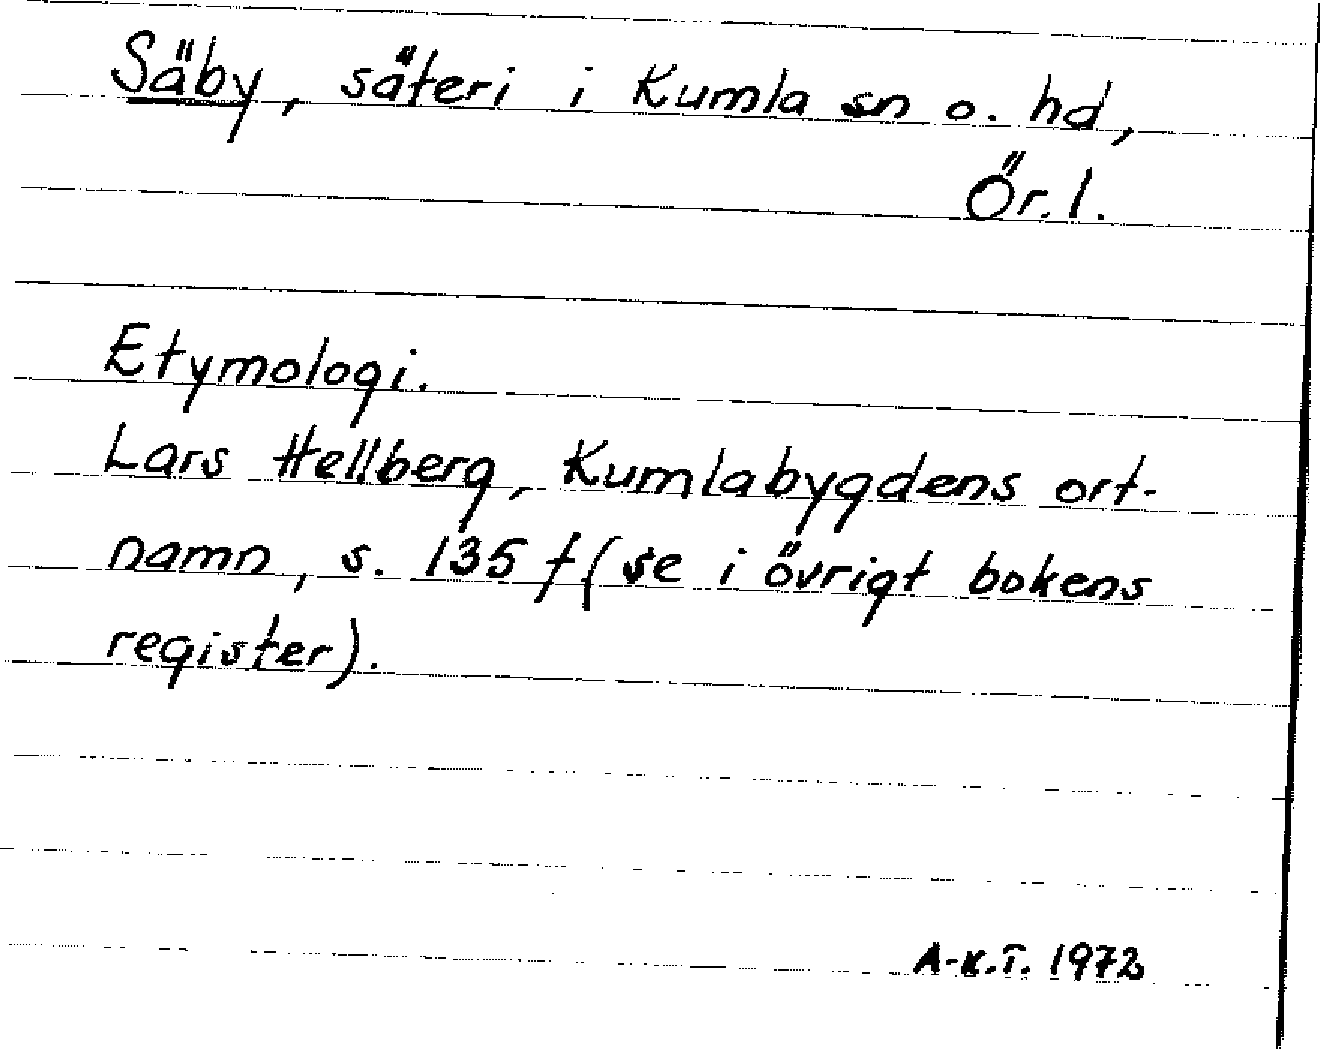 Säby, säteri i Kumla sn o. hd,
Ör. l.
Etymologi.
Lars Hellberg, Kumlabygdens ort-
namn, s. 135 f (se i övrigt bokens
register).
A-K.T. 1972